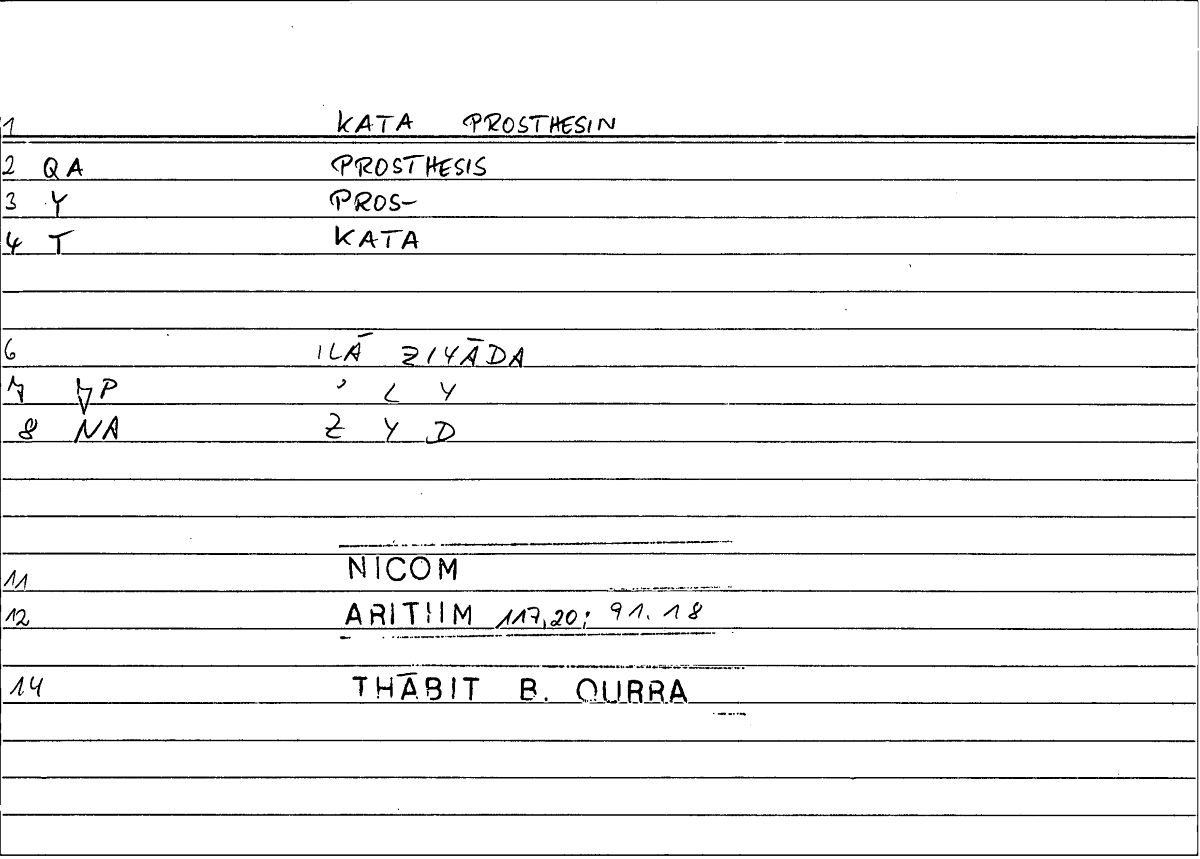 1 KATA PROSTHESIN
2 QA PROSTHESIS
3 Y PROS-
4 T KATA
6 ILĀ ZIYĀDA
7 7P ʾ L Y
8 NA Z Y D
11 NICOM
12 ARITHM 117,20; 91.18
14 THĀBIT B. QURRA